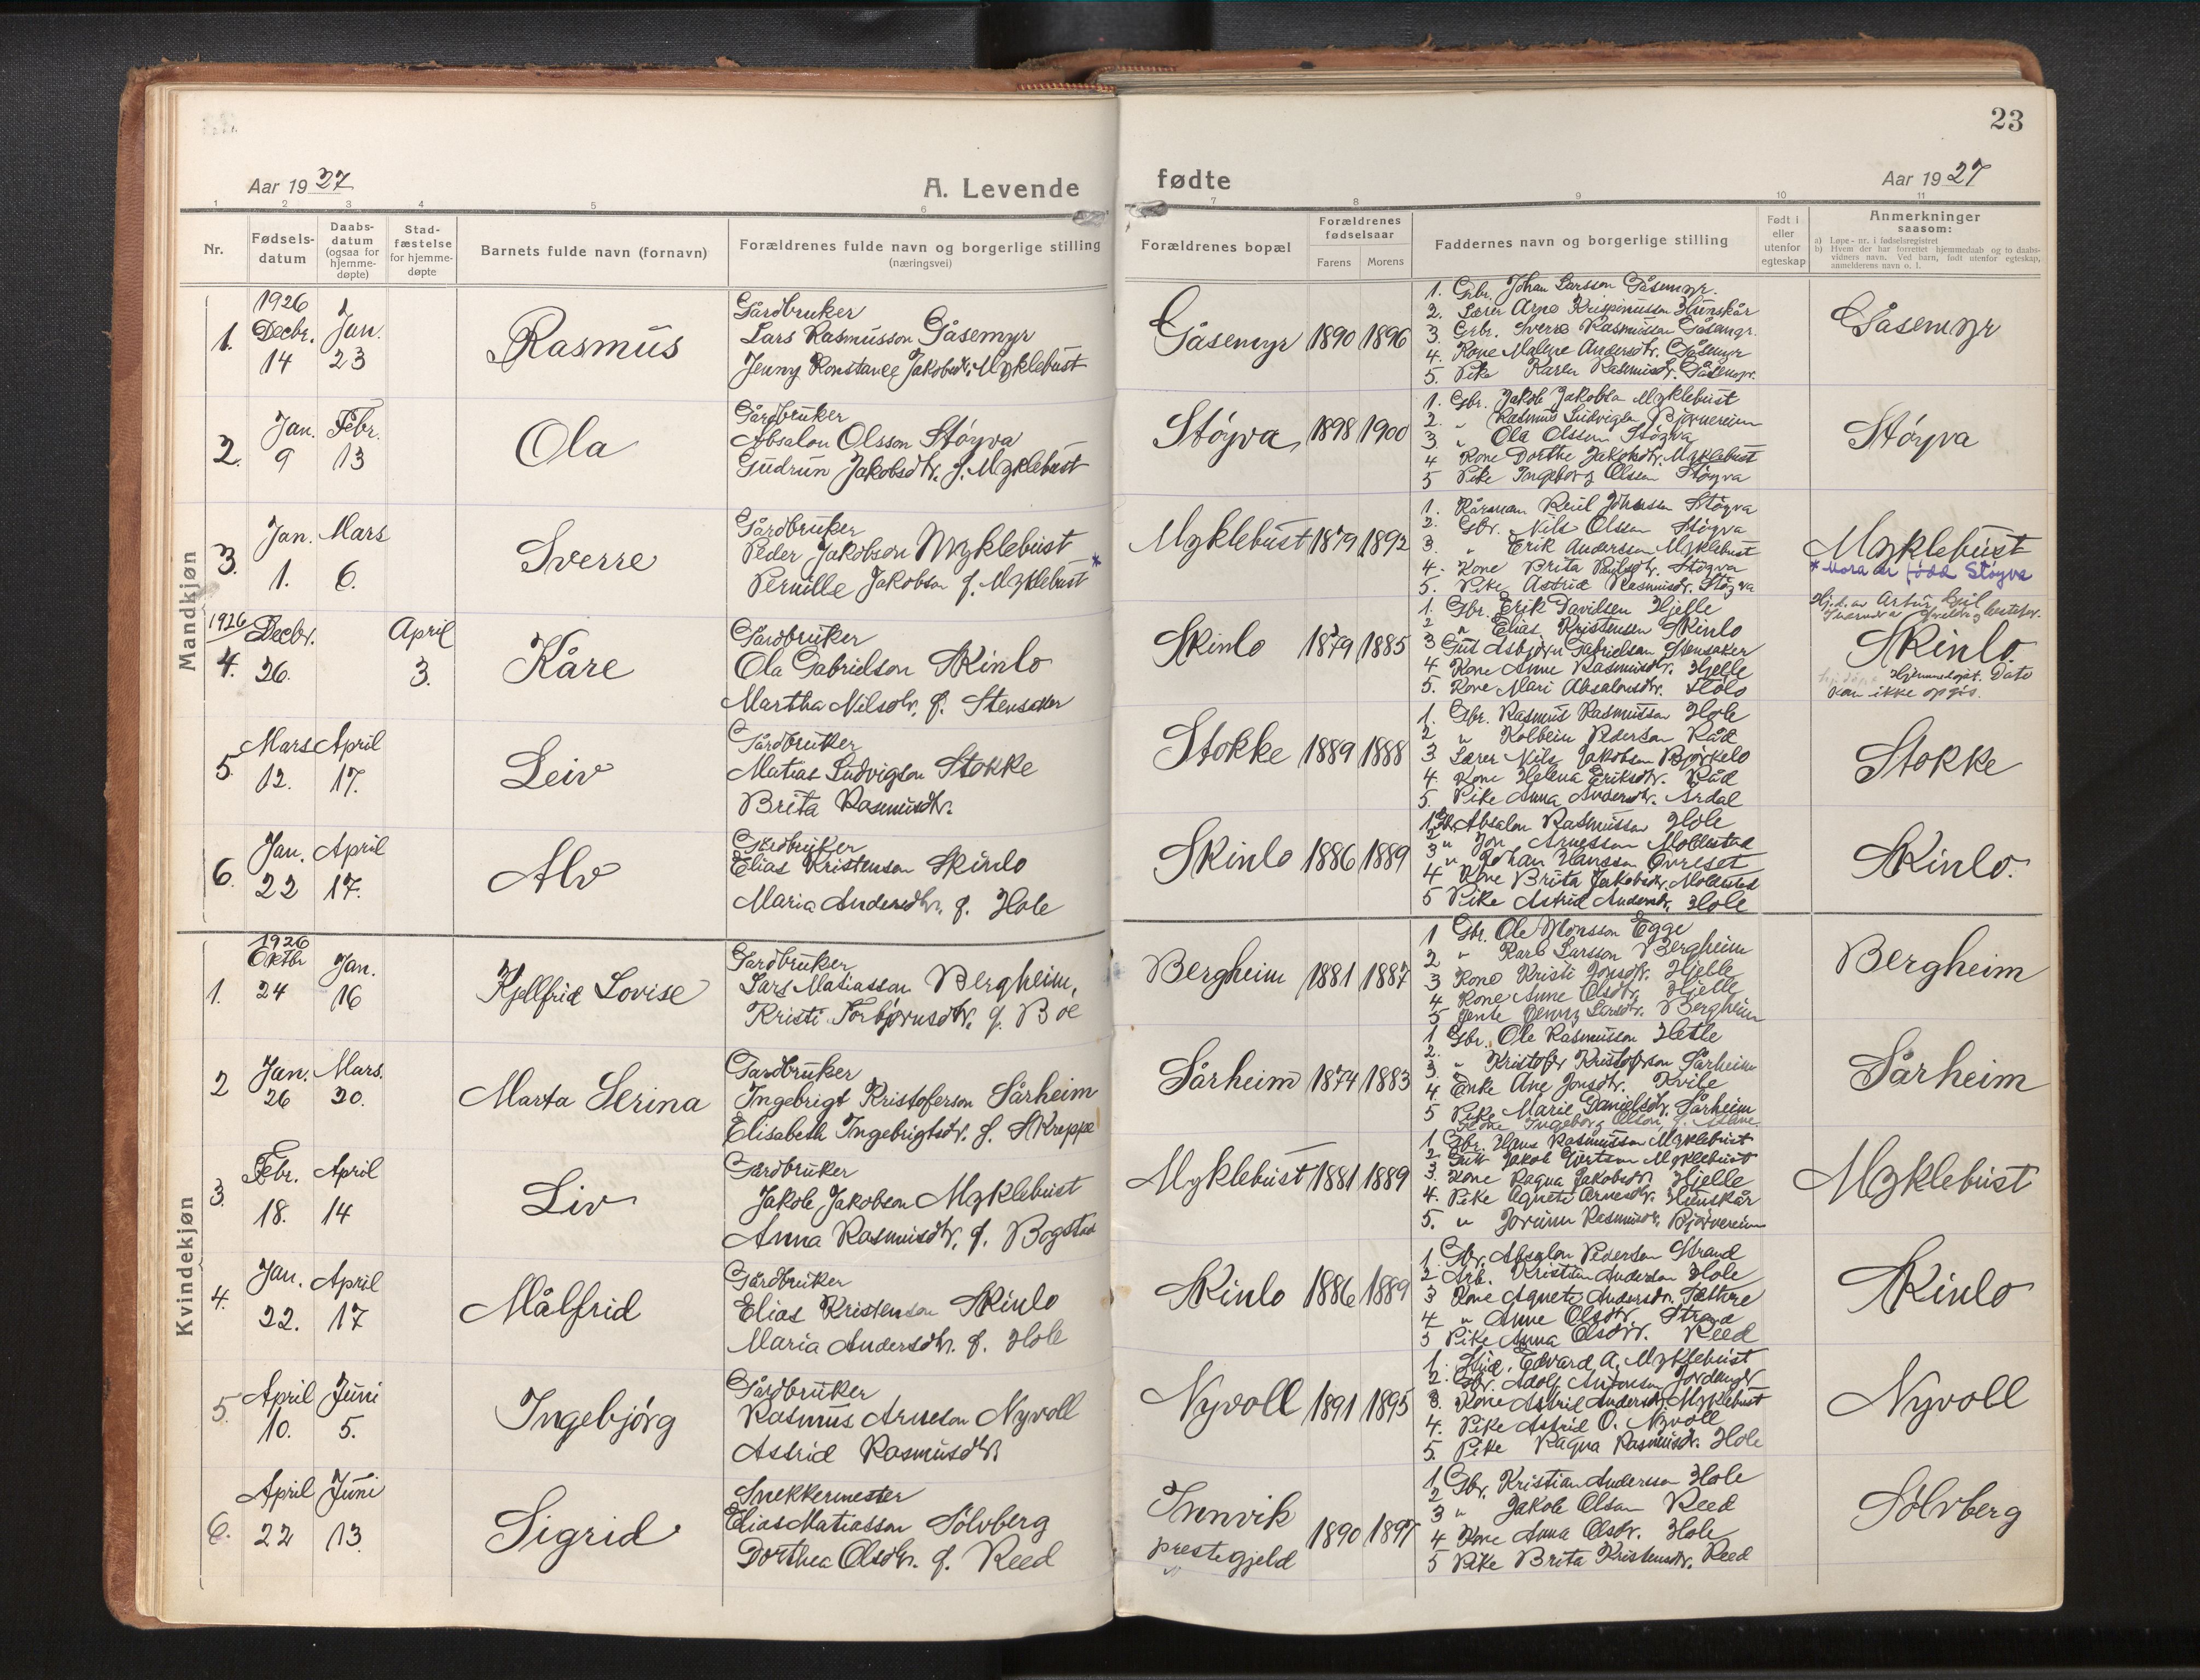 23
Aar 1927
A. Levende
fødte
Aar 1927
1 2 3 4 5 6 7 8 9 10 11
Nr.
Fødsels-
datum
Daabs-
datum
(ogsaa for
hjemme-
døpte)
Stad-
fæstelse
for hjemme-
døpte
Barnets fulde navn (fornavn)
Forældrenes fulde navn og borgerlige stilling
(næringsvei)
Forældrenes bopæl
Forældrenes
fødselsaar
Farens Morens
Faddernes navn og borgerlige stilling
Født i
eller
utenfor
egteskap
Anmerkninger
saasom:
a) Løpe-nr. i fødselsregistret
b) Hvem der har forrettet hjemmedaab og to daabs-
vidners navn. Ved barn, født utenfor egteskap,
anmelderens navn o. l.
Mandkjøn
1.
1926
Decbr.
14
Jan.
23
Rasmus
Gårdbruker
Lars Rasmusson Gåsemyr
Jenny Konstanse Jakobsdtr. Myklebust
Gåsemyr
1890 1896
1. Gbr. Johan Larsson Gåsemyr.
2. Lærer Arne Krispinusson Hunskår
3 Gbr. Sverre Rasmusson Gåsemyr.
4. Kone Malene Andersdtr. Gåsemyr
5. Pike Karen Rasmusdt. Gåsemyr.
Gåsemyr
2.
Jan.
9
Febr.
13
Ola
Gårdbruker
Absalon Olsson Støyva
Gudrun Jakobsdtr. f. Myklebust
Støyva
1898 1900
1. Gbr. Jakob Jakobsen Myklebust
2. " Rasmus Ludvigsen Bjørnereim
3 " Ola Olsson Støyva
4 Kone Dorthe Jakobsdtr. Myklebust
5 Pike Ingeborg Olsson Støyva
Støyva
3.
Jan.
1.
Mars
6.
Sverre
Gårdbruker
Peder Jakobson Myklebust
Pernille Jakobson f. Myklebust *
Myklebust
1879 1892
1. Kårmann Reul Johnsson Støyva
2. Gbr. Nils Olsson Støyva
3. " Erik Anderssen Myklebust
4. Kone Brita Nilsdtr. Støyva
5. Pike Astrid Rasmusdt. Støyva
Myklebust
* Mora er født Støyva
1926
4.
Decbr.
26.
April
3.
Kåre
Gårdbruker
Ola Gabrielson Skinlo
Martha Nilsdtr. f. Stensaker
Skinlo
1879 1885
1. Gbr. Erik Davidsen Hjelle
2 " Elias Kristensen Skinlo
3 Gut Asbjørn Gabrielsen Stensaker
4 Kone Anne Rasmusdtr. Hjelle
5. Kone Mari Absalonsdtr. Holo
Hj.d. av Artur
Skinlo
Hjemmedøpt. Dato
kan ikke opgis.
5.
Mars
12.
April
17.
Leiv
Gårdbruker
Matias Ludvigson Stokke
Brita Rasmusdtr.
Stokke
1889 1888
1. Gbr. Rasmus Rasmusson Hole
2 " Kolbein Pederson Råd
3 Lærer Nils Jakobson Bjørkelo
4. Kone Helena Eriksdtr. Råd
5. Pike Anna Andersdtr. Årdal
Stokke
6.
Jan.
22
April
17.
Alv
Gårdbruker
Elias Kristenson Skinlo
Maria Andersdtr. f. Hole
Skinlo
1886 1889
1 Gbr. Absalon Rasmusson Hole
2 " Jon Arnesson Mollestad
3 " Johan Hansson Øvreset
4 Kone Brita Jakobsdt. Mollestad
5 Pike Astrid Andersdtr. Hole
Skinlo.
Kvindekjøn
1.
1926
Oktbr
24
Jan.
16
Kjellfrid Lovise
Gardbruker
Lars Matiasson Bergheim,
Kristi Torbjørnsdtr. f. Bøe
Bergheim
1881 1887
1 Gbr. Ole Monsson Egge
2 " Karl Larsson Bergheim
3 Kone Kristi Jonsdtr. Hjelle
4 Kone Anne Olsdtr. Hjelle
5 Jente Jenny Larsdtr. Bergheim
Bergheim
2
Jan.
26
Mars.
20.
Marta Serina
Gardbruker
Ingebrigt Kristoferson Sårheim
Elisabeth Ingebrigtsdtr. f. Skreppe
Sårheim
1874 1883
1 Gbr. Ole Rasmusson Hetle
2.
3. " Kristofer Kristoferson Sårheim
4 Enke Ane Jonsdtr. Kvile
5 Pike Marie Danielsdtr. Sårheim
Kone Ingeborg Olson, f.
Sårheim
3.
Febr.
18.
April
14
Liv
Gårdbruker
Jakob Jakobson Myklebust
Anna Rasmusdtr. f. Bogstad
Myklebust
1881 1889
1 Gbr. Hans Rasmusson Myklebust
2. Gutt Jakob Gjertson Myklebust
3. Kone Ragna Jakobsdtr. Hjelle
4. Pike Agnete Arnesdtr. Hunskår
5. " Jorunn Rasmusdt. Bjørnereim
Myklebust
4.
Jan.
22.
April
17
Målfrid
Gårdbruker
Elias Kristenson Skinlo
Maria Andersdtr. f. Hole
Skinlo
1886 1889
1. Gbr. Absalon Pederson Strand
2 Arb. Kristian Anderson Hole
3 Kone Agnete Andersdtr. Sæthre
4 " Anne Olsdtr. Strand
5 Pike Anna Olsdtr. Reed
Skinlo
5.
April
10.
Juni
5.
Ingebjørg
Gårdbruker
Rasmus Arneson Nyvoll
Astrid Rasmusdtr.
Nyvoll
1891 1895
1. Stud. Edvard A. Myklebust
2. Gbr. Adolf Antonsen Jordanger
3. Kone Astrid Andersdtr. Myklebust
4. Pike Astrid O. Nyvoll
5. Pike Ragna Rasmusdt. Hole
Nyvoll
6.
April
22
Juni
13.
Sigrid
Snekkermester
Elias Matiasson Solvberg
Dorthea Olsdtr. f. Reed
Innvik
prestegjeld
1890 1897
1 Gbr. Kristian Andersson Hole
2
3 " Jakob Olsen Reed
4 Kone Anna Olsdtr. Hole
5 Pike Brita Kristensdtr. Reed
Solvberg